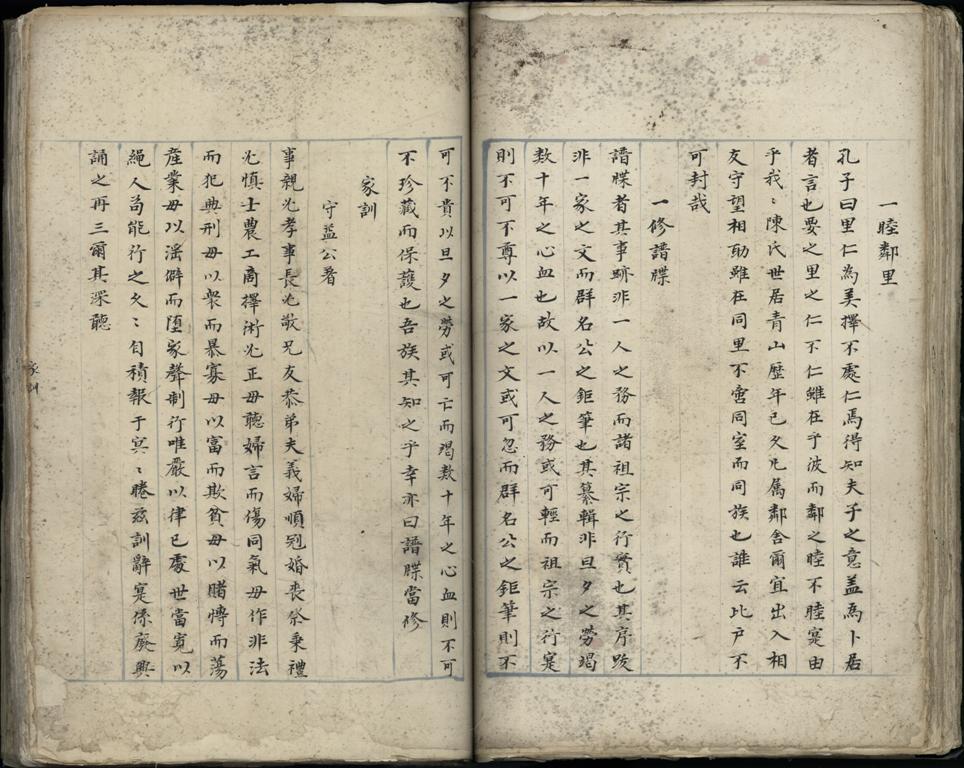 一睦鄰里
孔子曰里仁為美擇不處仁焉得知夫子之意盖為卜居
者言也要之里之仁不仁雖在乎波而鄰之睦不睦寔由
乎我〻陳氏世居青山歷年已久凡属鄰舍爾宜出入相
友守望相助雖在同里不啻同室而同族也誰云比户不
可封哉
一修譜牒
譜牒者其事跡非一人之務而諸祖宗之行實也其序跋
非一家之文而群名公之鉅筆也其纂輯非旦夕之勞竭
数十年之心血也故以一人之務或可輕而祖宗之行寔
則不可不尊以一家之文或可忽而群名公之鉅筆則不
可不貴以旦夕之勞或可亡而竭数十年之心血則不可
不珍藏而保護也吾族其知之乎幸亦曰譜牒當修
家訓
守益公著
事親必孝事長必敬兄友恭弟夫義婦順冠婚丧祭秉禮
必慎士農工商擇術必正毋聽婦言而傷同氣毋作非法
而犯典刑毋以衆而暴寡毋以富而欺貧毋以賭愽而蕩
産業毋以滛僻而堕家聲制行唯嚴以律已處世當寛以
繩人苟能行之久〻自積報于冥〻睠兹訓辭寔係廢興
誦之再三爾其深聽
家訓